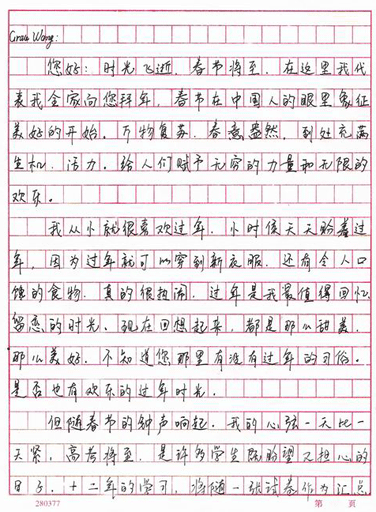 Grace Wong:
您好：时光飞逝．春节将至．在这里我代
表我全家向您拜年．春节在中国人的眼里象征
美好的开始．万物复苏．春意盎然．到处充满
生机．活力．给人们赋予无穷的力量和无限的
欢乐．
我从小就很喜欢过年．小时候天天盼着过
年．因为过年就可以穿到新衣服．还有令人口
馋的食物．真的很热闹．过年是我最值得回忆
留恋的时光．现在回想起来．都是那么甜美．
那么美好．不知道您那里有没有过年的习俗．
是否也有欢乐的过年时光．
但随春节的钟声响起．我的心弦一天比一
天紧．高考将至．是许多学生既盼望又担心的
日子．十二年的学习．将随一张试卷作为汇总
280377
第 页